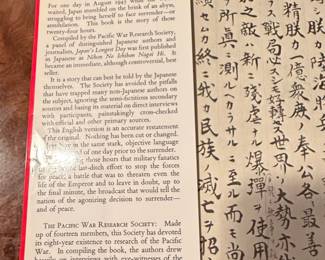 For one day in August 1945 while the
waited, Japan on the brink of an abyss,
struggling to bring herself to face surrender—or
annihilation. This book is the story of those
twenty-four hours.
Compiled by the Pacific War Research Society,
a panel of distinguished Japanese authors and
journalists, Japan's Longest Day was first published
in Japanese as Nihon No Ichiban Nagai Hi. It
became an immediate, although controversial, best
seller.
It is a story that can best be told by the Japanese
themselves. The Society has avoided the pitfalls
that have trapped many non-Japanese authors on
the subject, ignoring the semi-fictitious secondary
sources and basing its material on direct interviews
with participants, painstakingly cross-checked
with official and other primary sources.
This English version is an accurate restatement
of the original. Nothing has been cut or changed.
in its same stark, objective language
of one day prior to the surrender.
those hours that military fanatics
last-ditch effort to stop the forces
a battle that was to threaten even
life of the Emperor and to leave in doubt, up to
final minute, the broadcast that would tell
nation of the agonizing decision to surrender—
and of peace.
THE PACIFIC WAR RESEARCH SOCIETY: Made
up of fourteen members, this Society has devoted
its eight-year existence to research of the Pacific
War. In compiling the book, the authors drew
精朕カ一億衆庶ノ奉公
ス戰局必スシモ好轉セス世界ノ大勢亦
敵ハ新ニ殘虐ナル爆彈ヲ使用
所眞ニ測ルヘカラサルニ至ル而モ尚
續セムカ終ニ我カ民族ノ滅亡ヲ招